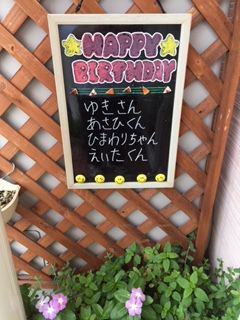 HAPPY
BIRTHDAY
ゆきさん
あさひくん
ひまわりちゃん
えいたくん